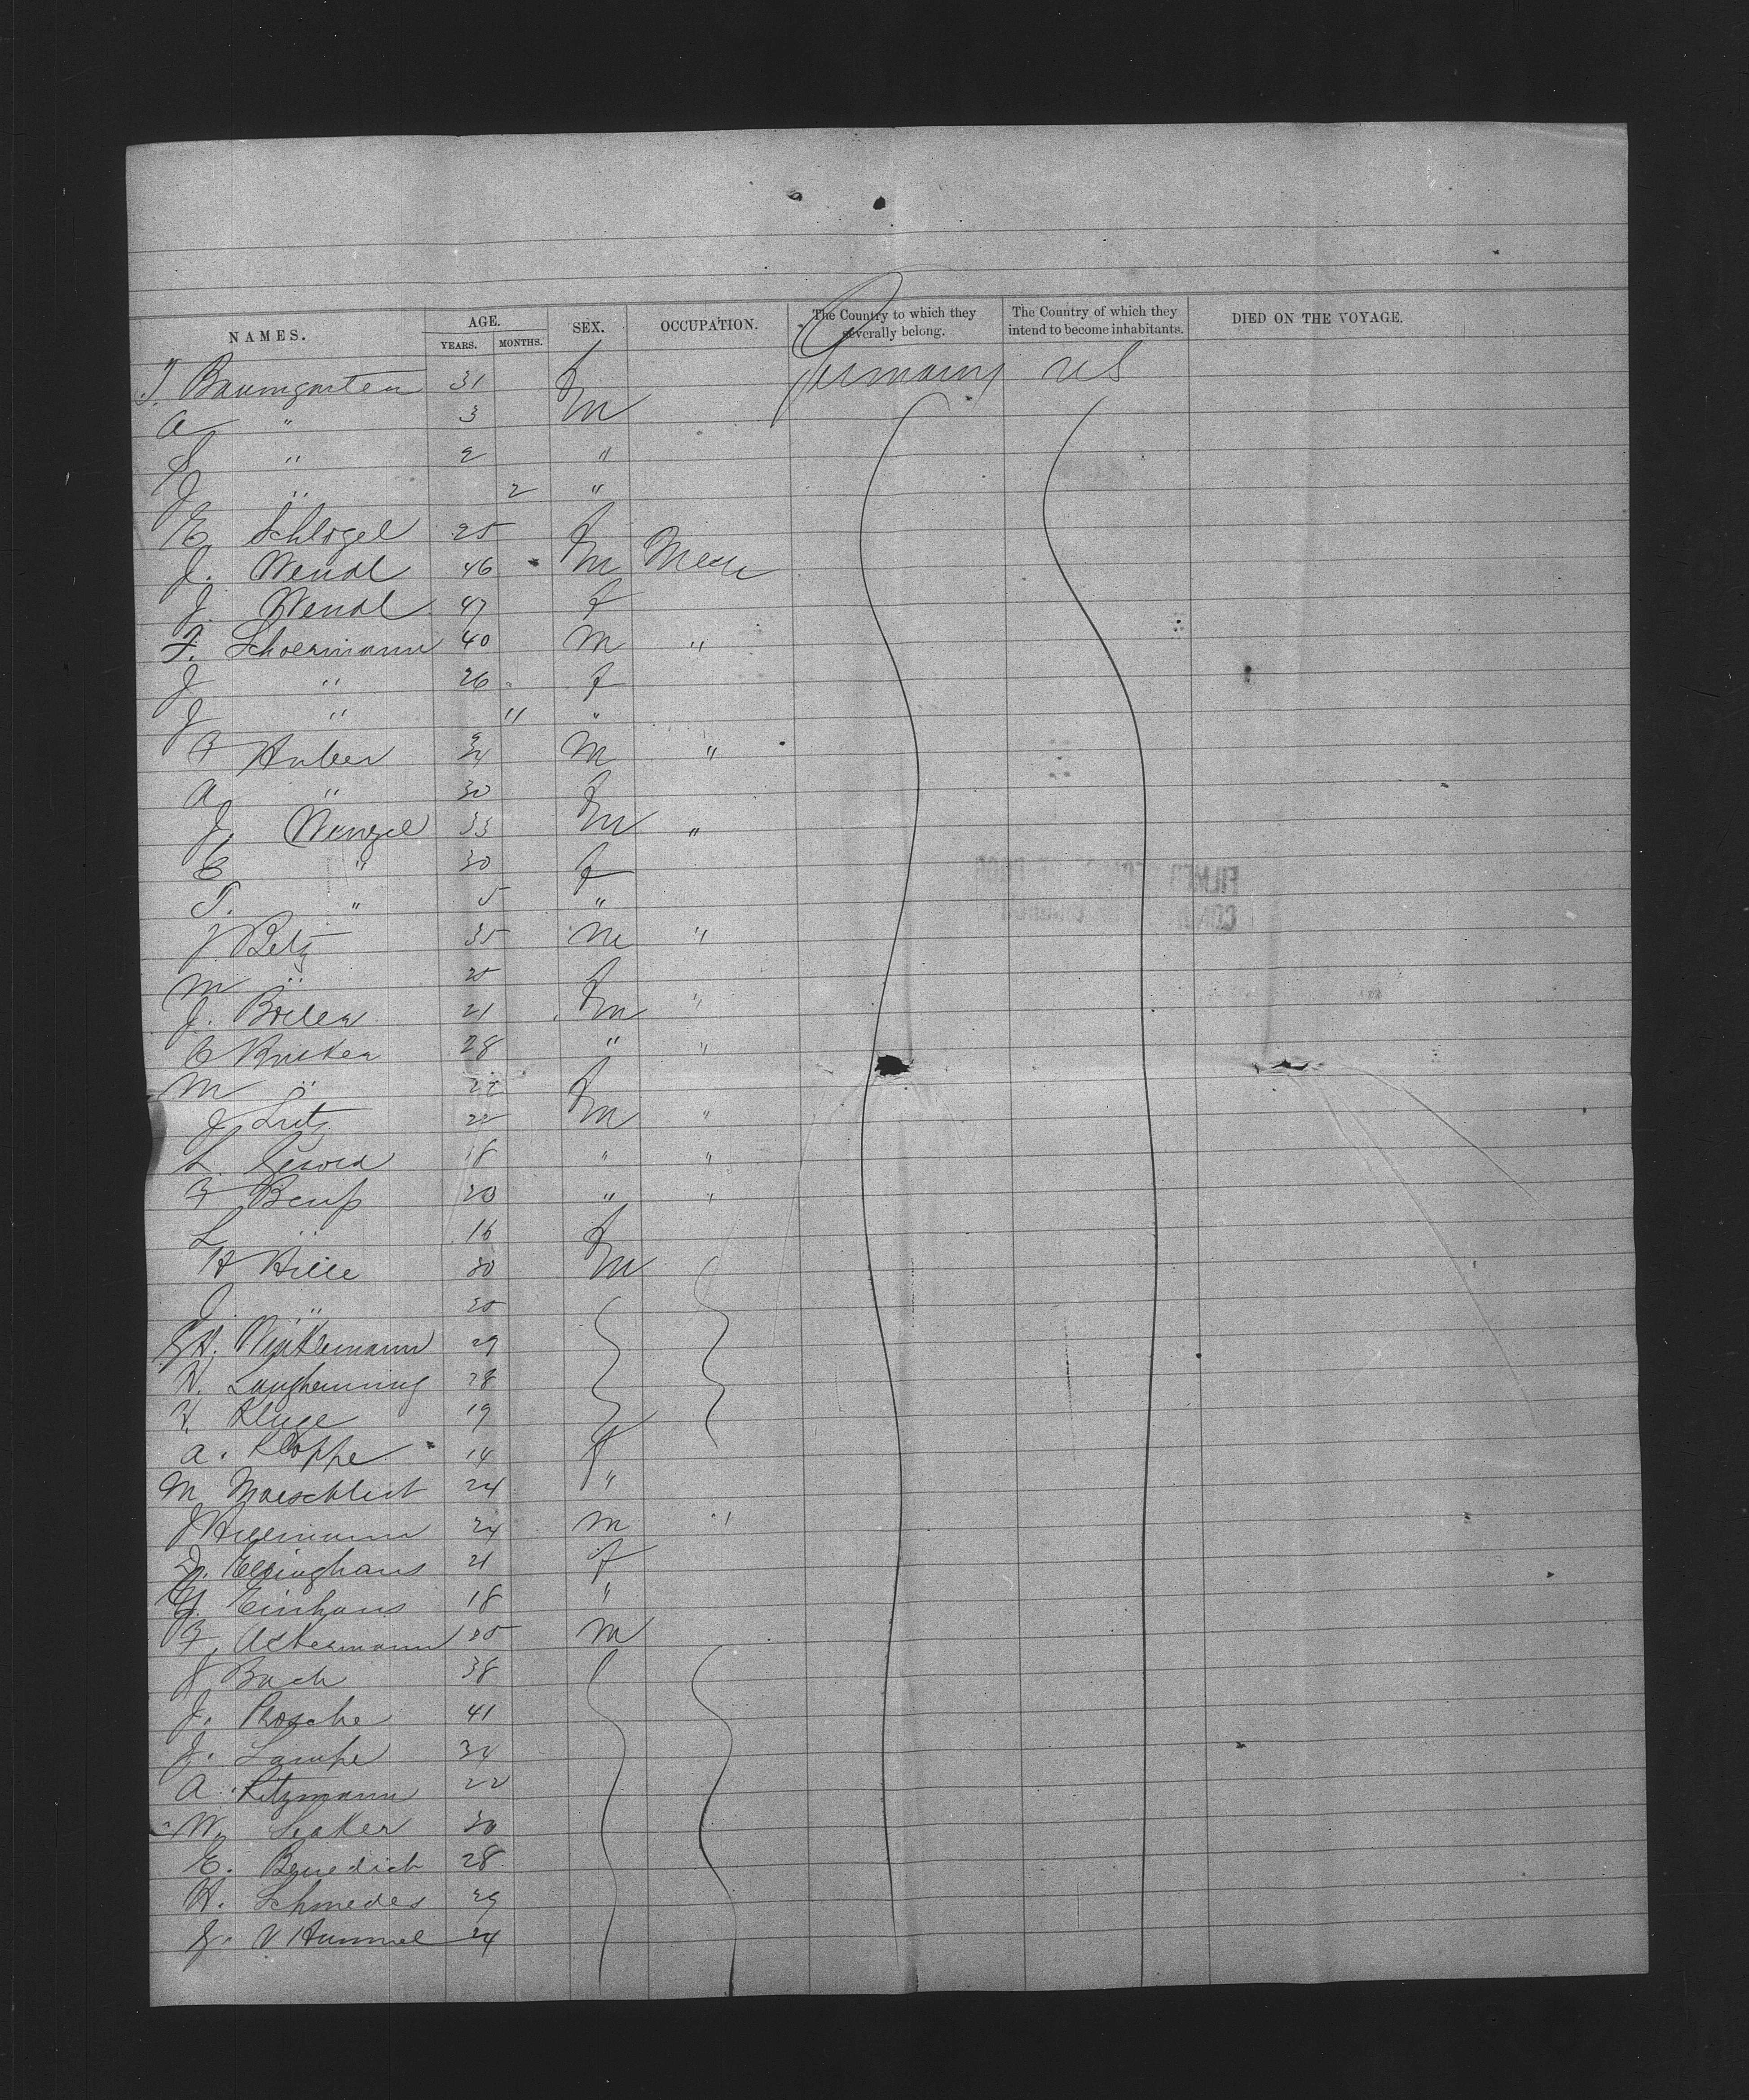 NAMES. AGE. SEX. OCCUPATION. The Country to which they severally belong. The Country of which they intend to become inhabitants. DIED ON THE VOYAGE.
YEARS. MONTHS.
T. Baumgarten 31 f Germany US
A " 3 m
" 2 "
J " 2 "
E. Schlogel 25 f
J. Wendl 46 m Mech
J. Wendl 47 f
F. Schoermann 40 m "
J " 26 f
J " 11 "
F Huber 34 m "
A " 30 f
J. Wenzel 33 m "
C " 30 f
T. " 5 "
J Betz 35 m "
M " 25 f
J. 21 m "
C 28 " "
M " 22 f
J Lutz 22 m "
L. 18 " "
F 20 " "
L " 16 f
H Hille 30 m
J. " 25
H. Winklemann 29
H. Langhenning 28
F. Kluge 19
A. Kloppe 14 f
M 24 "
J Hillmann 24 m "
Ellinghaus 21 f
Einhaus 18 "
F. Ackermann 25 m
J Bach 38
J. 41
J. Lampe 34
A. Litzmann 22
W. 30
E. Benedick 28
H. Schmedes 29
J. V Hummel 24